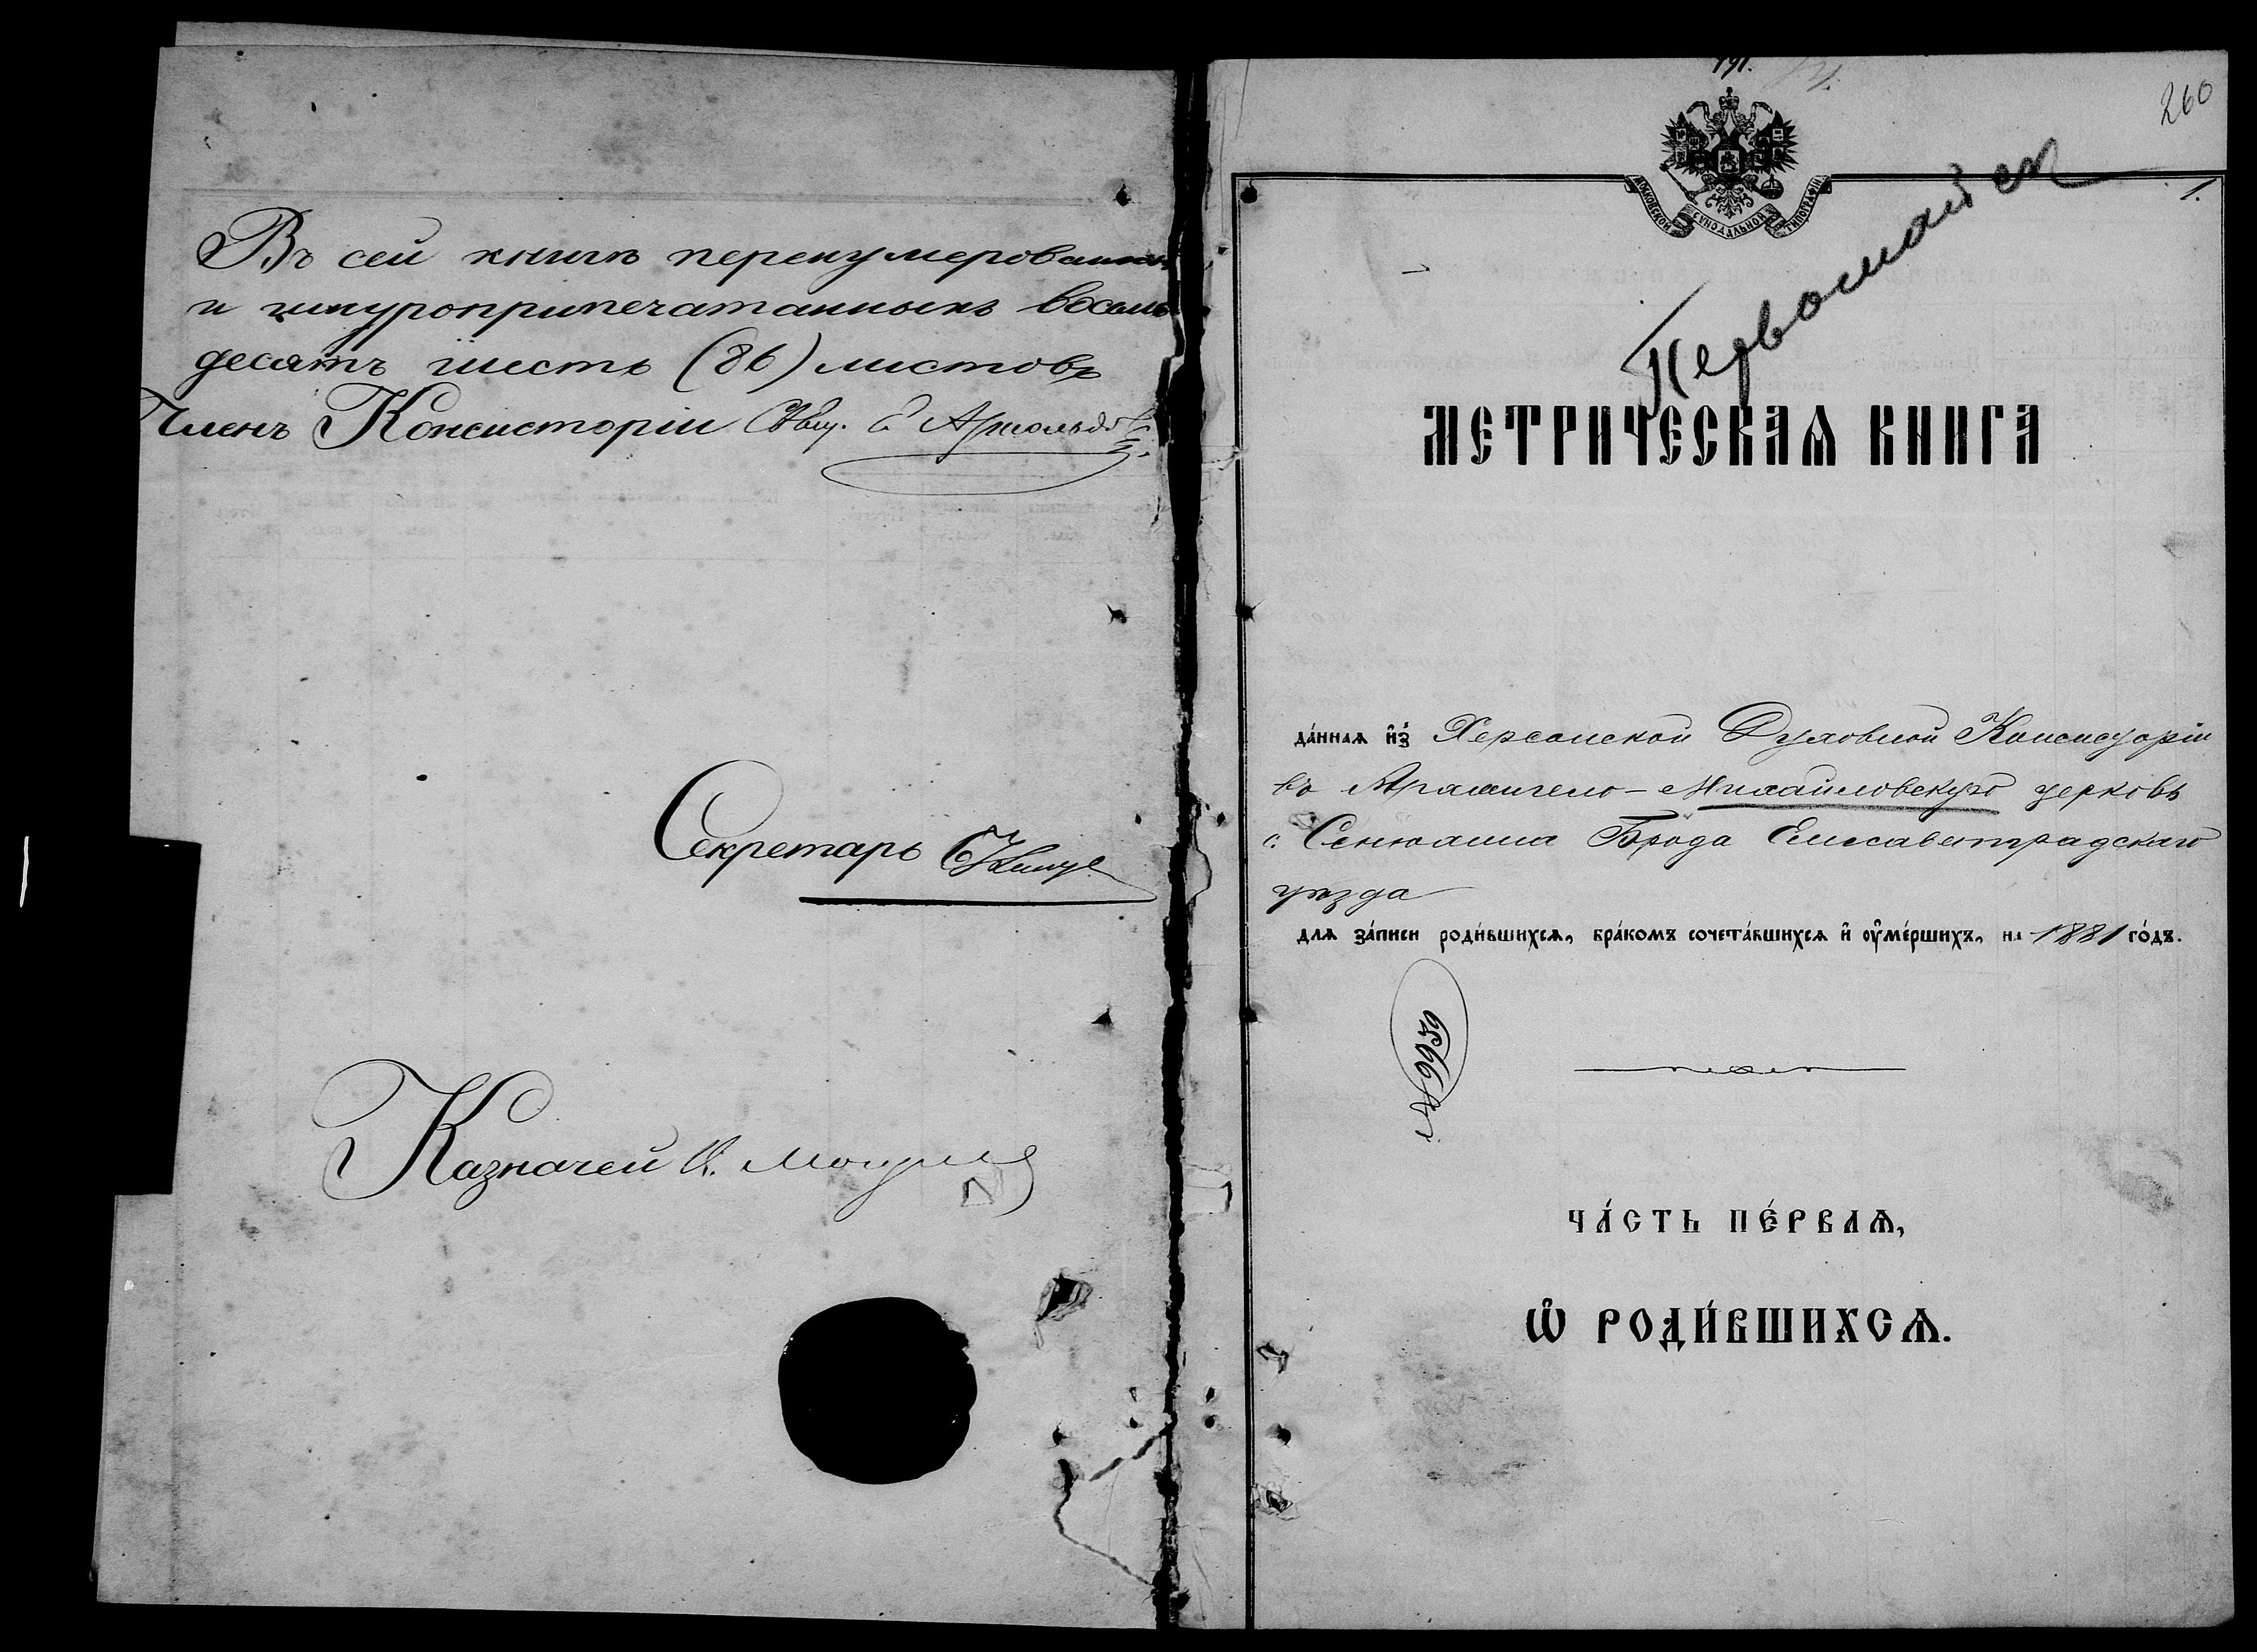 Въ сей книгѣ перенумерованныхъ
и шнуроприпечатанныхъ восемь
десятъ шесть (86) листовъ
Членъ Консисторіи Свящ. Арнольдовъ
Секретарь
Казначей
191.
260
1.
МОСКОВСКОЙ СѴНОДАЛЬНОЙ ТИПОГРАФІИ
Первомайск
МЕТРИЧЕСКАѦ КНИГА
да́ннаѧ и҆з̾ Херсонской Духовной Консисторіи
въ Архангело-Михайловскую церковь
с. Сенюхина Брода Елисаветградскаго
уѣзда
длѧ за́писи роди́вшихсѧ, бра́комъ сочета́вшихсѧ и҆ ᲂу҆ме́ршихъ, на 1881 го́дъ.
№ 6566
ЧА́СТЬ ПЕ́РВАѦ,
Ѡ҆ РОДИ́ВШИХСѦ.